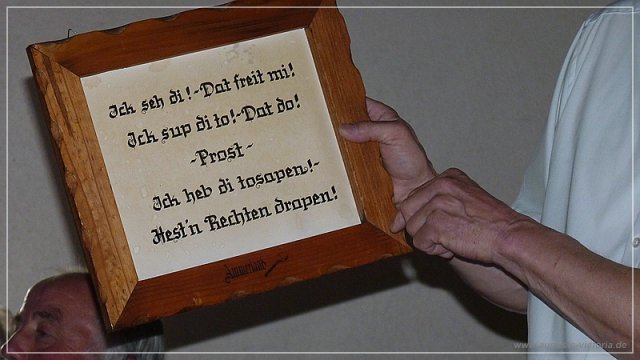 Ick seh di!-Dat freit mi!
Ick sup di to!-Dat do!
-Prost-
Ick heb di tosopen!-
Hest'n Rechten dropen!
Ammerland